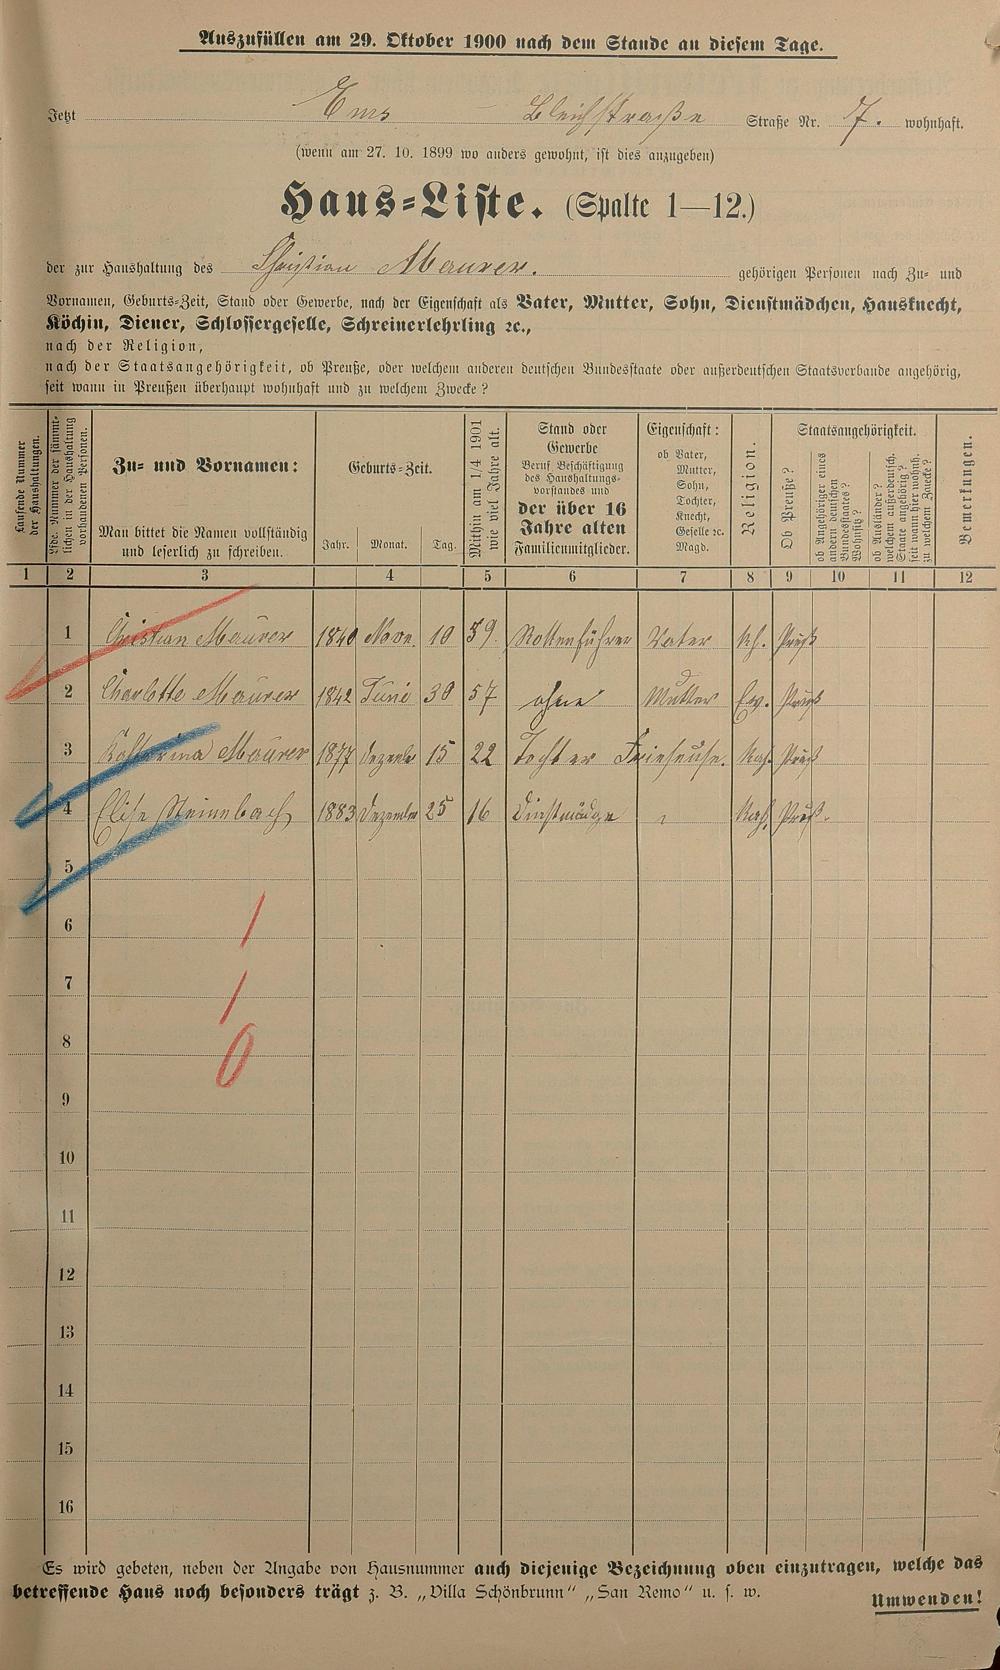 Auszufüllen am 29. Oktober 1900 nach dem Stande an diesem Tage.
Jetzt Ems Bleichstraße Straße Nr. 7. wohnhaft.
(wenn am 27. 10. 1899 wo anders gewohnt, ist dies anzugeben)
Haus-Liste. (Spalte 1—12.)
der zur Haushaltung des Christian Maurer. gehörigen Personen nach Zu- und
Vornamen, Geburts-Zeit, Stand oder Gewerbe, nach der Eigenschaft als Vater, Mutter, Sohn, Dienstmädchen, Hausknecht,
Köchin, Diener, Schlossergeselle, Schreinerlehrling ꝛc.,
nach der Religion,
nach der Staatsangehörigkeit, ob Preuße, oder welchem anderen deutschen Bundesstaate oder außerdeutschen Staatsverbande angehörig,
seit wann in Preußen überhaupt wohnhaft und zu welchem Zwecke?
Laufende Nummer
der Haushaltungen.
Lfde. Nummer der sämmt-
lichen in der Haushaltung
vorhandenen Personen.
Zu- und Vornamen:
Man bittet die Namen vollständig
und leserlich zu schreiben.
Geburts-Zeit.
Jahr. Monat. Tag.
Mithin am 1/4 1901
wie viel Jahre alt.
Stand oder
Gewerbe
Beruf Beschäftigung
des Haushaltungs-
vorstandes und
der über 16
Jahre alten
Familienmitglieder.
Eigenschaft:
ob Vater,
Mutter,
Sohn,
Tochter,
Knecht,
Geselle ꝛc.
Magd.
Religion.
Staatsangehörigkeit.
Ob Preuße?
ob Angehöriger eines
andern deutschen
Bundesstaates?
Wohnsitz?
ob Ausländer?
welchem außerdeutsch.
Staate angehörig?
seit wann hier wohnh.
zu welchem Zwecke?
Bemerkungen.
1 2 3 4 5 6 7 8 9 10 11 12
1 Christian Maurer 1840 Nove. 10 59. Rottenführer Vater Preuß
2 Charlotte Maurer 1842 Juni 30 57 ohne Mutter Ev. Preuß
3 Katharina Maurer 1877 Dezember 15 22 Tochter Frieseuse. Kath. Preuß
4 Elise 1883 Dezember 25 16 Kath. Preuß.
5
6 1
7 1
8 0
9
10
11
12
13
14
15
16
Es wird gebeten, neben der Angabe von Hausnummer auch diejenige Bezeichnung oben einzutragen, welche das
betreffende Haus noch besonders trägt z. B. „Villa Schönbrunn“ „San Remo“ u. s. w.
Umwenden!